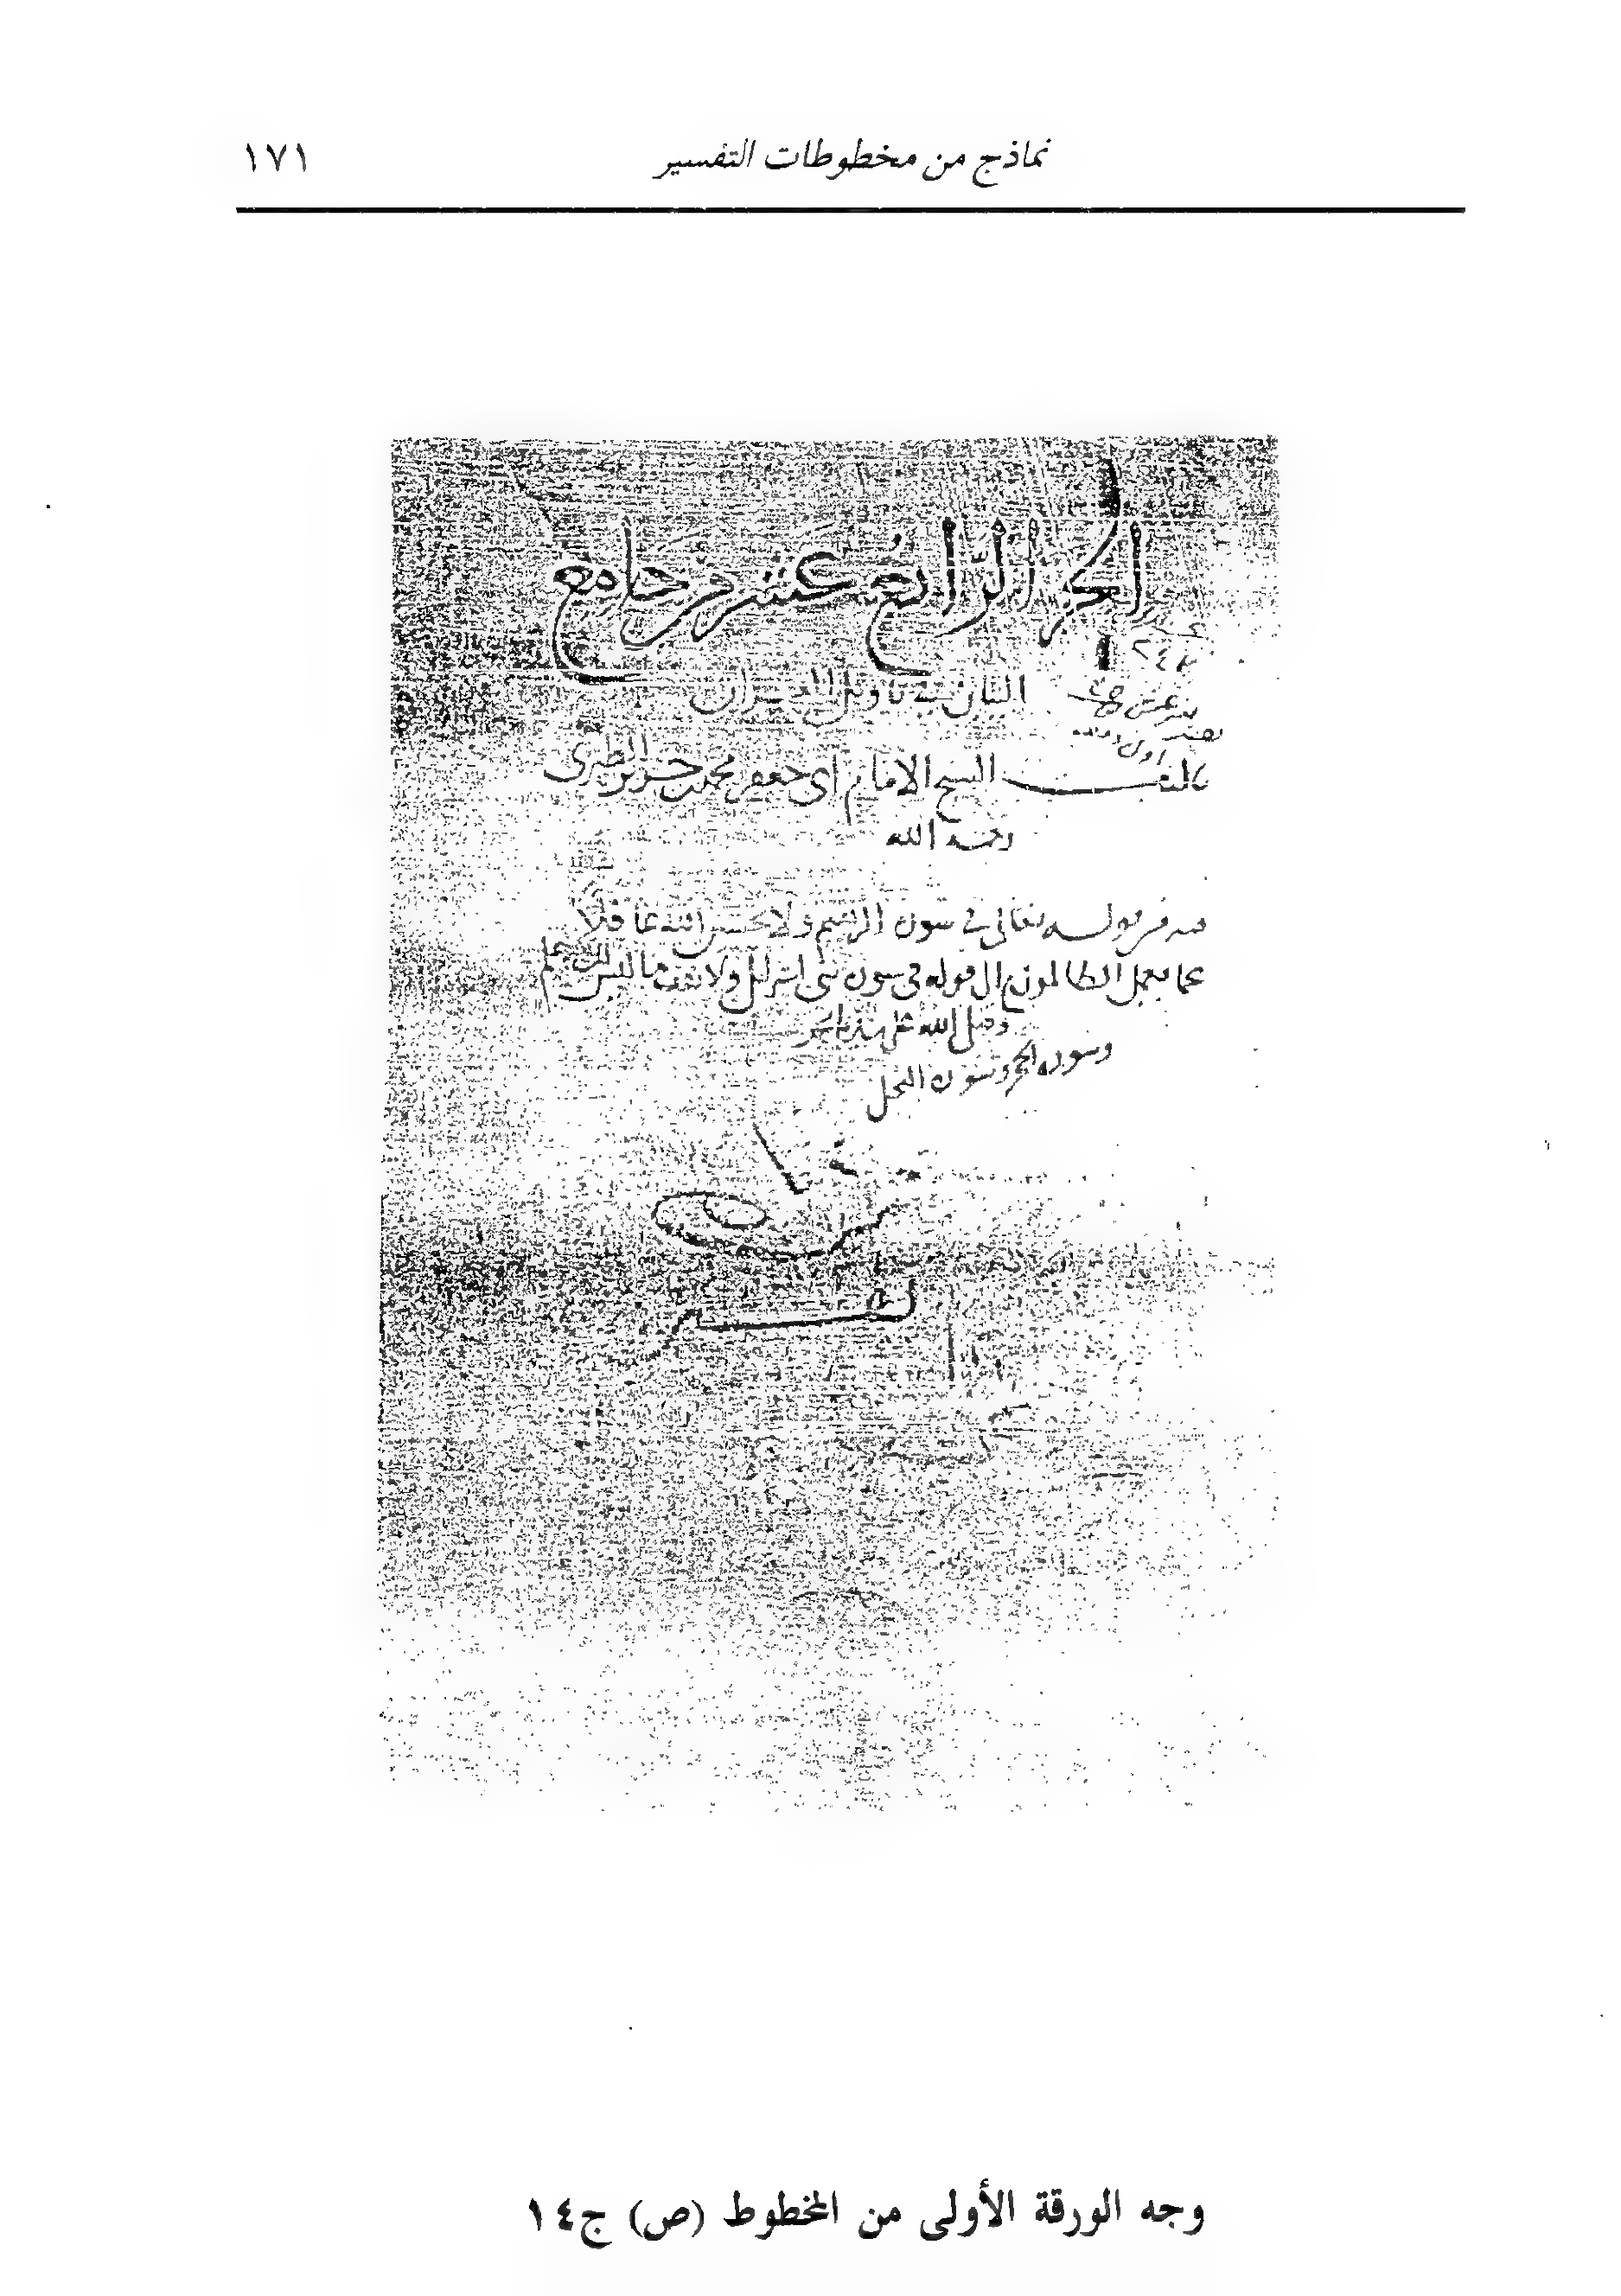 نماذج من مخطوطات التفسير ١٧١
الجزء الرابع عشر من جامع
البيان في تاويل القران
تاليف الشيخ الامام ابي جعفر محمد بن جرير الطبري
رحمه الله
فيه من قوله تعالى في سورة ابرهيم ولا تحسبن الله غافلا
عما يعمل الظالمون الى قوله في سورة بني اسرايل ولا تقف ما ليس لك به علم
وصلى الله على سيدنا محمد
وسورة الحجر وسورة النحل
وجه الورقة الأولى من المخطوط (ص) ج١٤